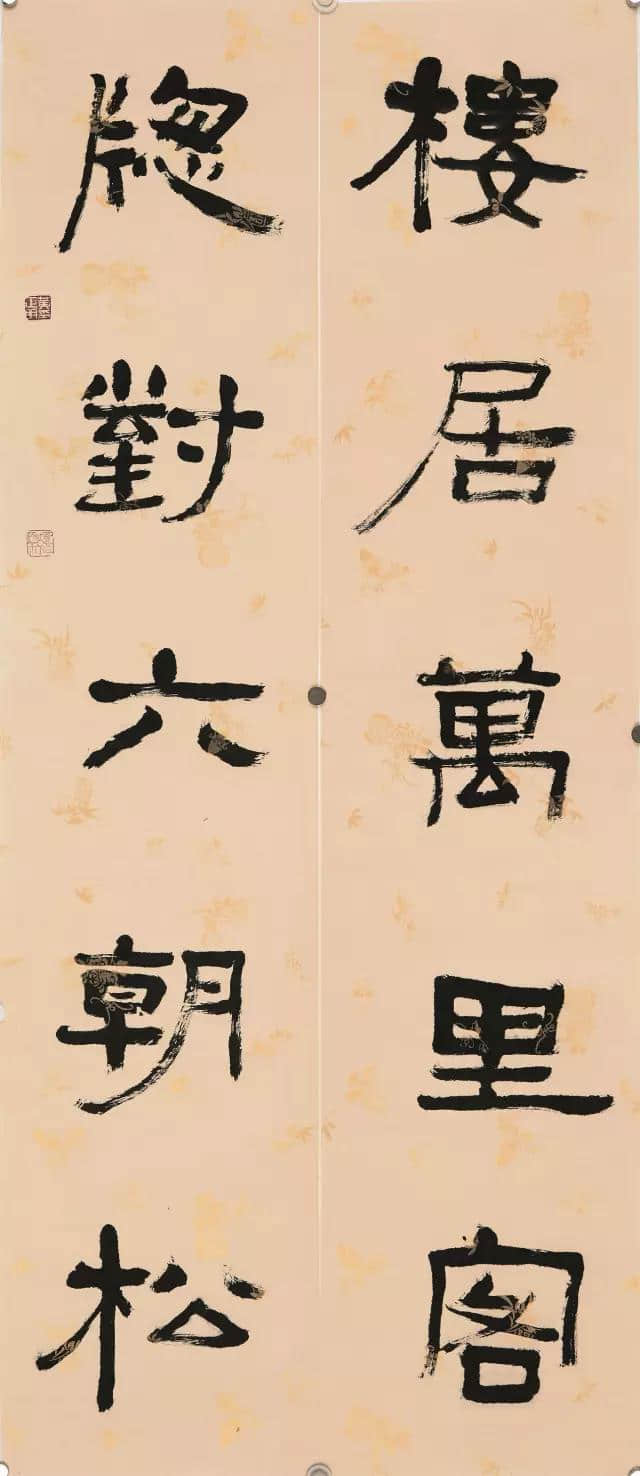 樓居萬里客
牕對六朝松